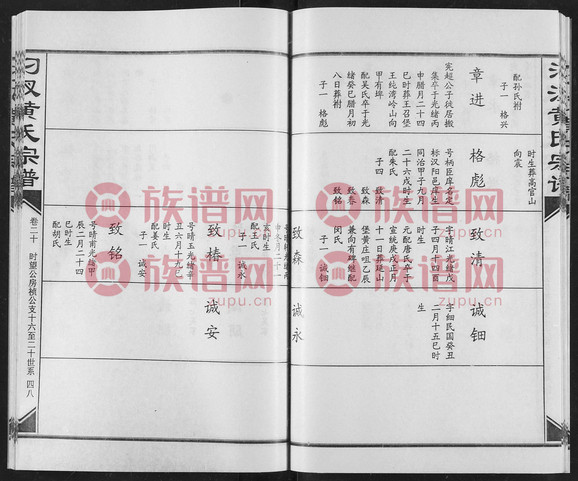 汈汊黄氏宗谱
配孙氏祔
子一 格兴
章进
宪超公子徒居搬
集卒于光绪丙
申腊月二十四
巳时葬王召堡
王纯湾岭山向
甲有碑
配吴氏卒于光
绪癸巳年腊月
八日葬祔
子一 格彪
时生葬高官山
向震
格彪
号柄臣庠名定
标汉阳邑庠生
同治甲子九月
二十六戌时生
配朱氏
子四 致清
致春
致森
致铭
致清
字晴江光绪戊
子四月十四酉
时生
元配唐氏卒于
宣统庚戌正月
十一日葬延山
堡黄庄咀乙辰
兼向有碑继配
闵氏
子一 诚钿
诚钿
字细民国癸丑
二月十五巳时
生
致森
诚永
申
亥时生
配王氏
子一 诚永
致椿
号晴玉光绪辛
丑六月十九巳
时生
配姜氏
子一 诚安
诚安
致铭
号晴甫光绪甲
辰二月二十四
巳时生
配胡氏
汈汊黄氏宗谱
卷二十 时望公房祯公支十六至二十世系 四八
族谱网
zupu.cn